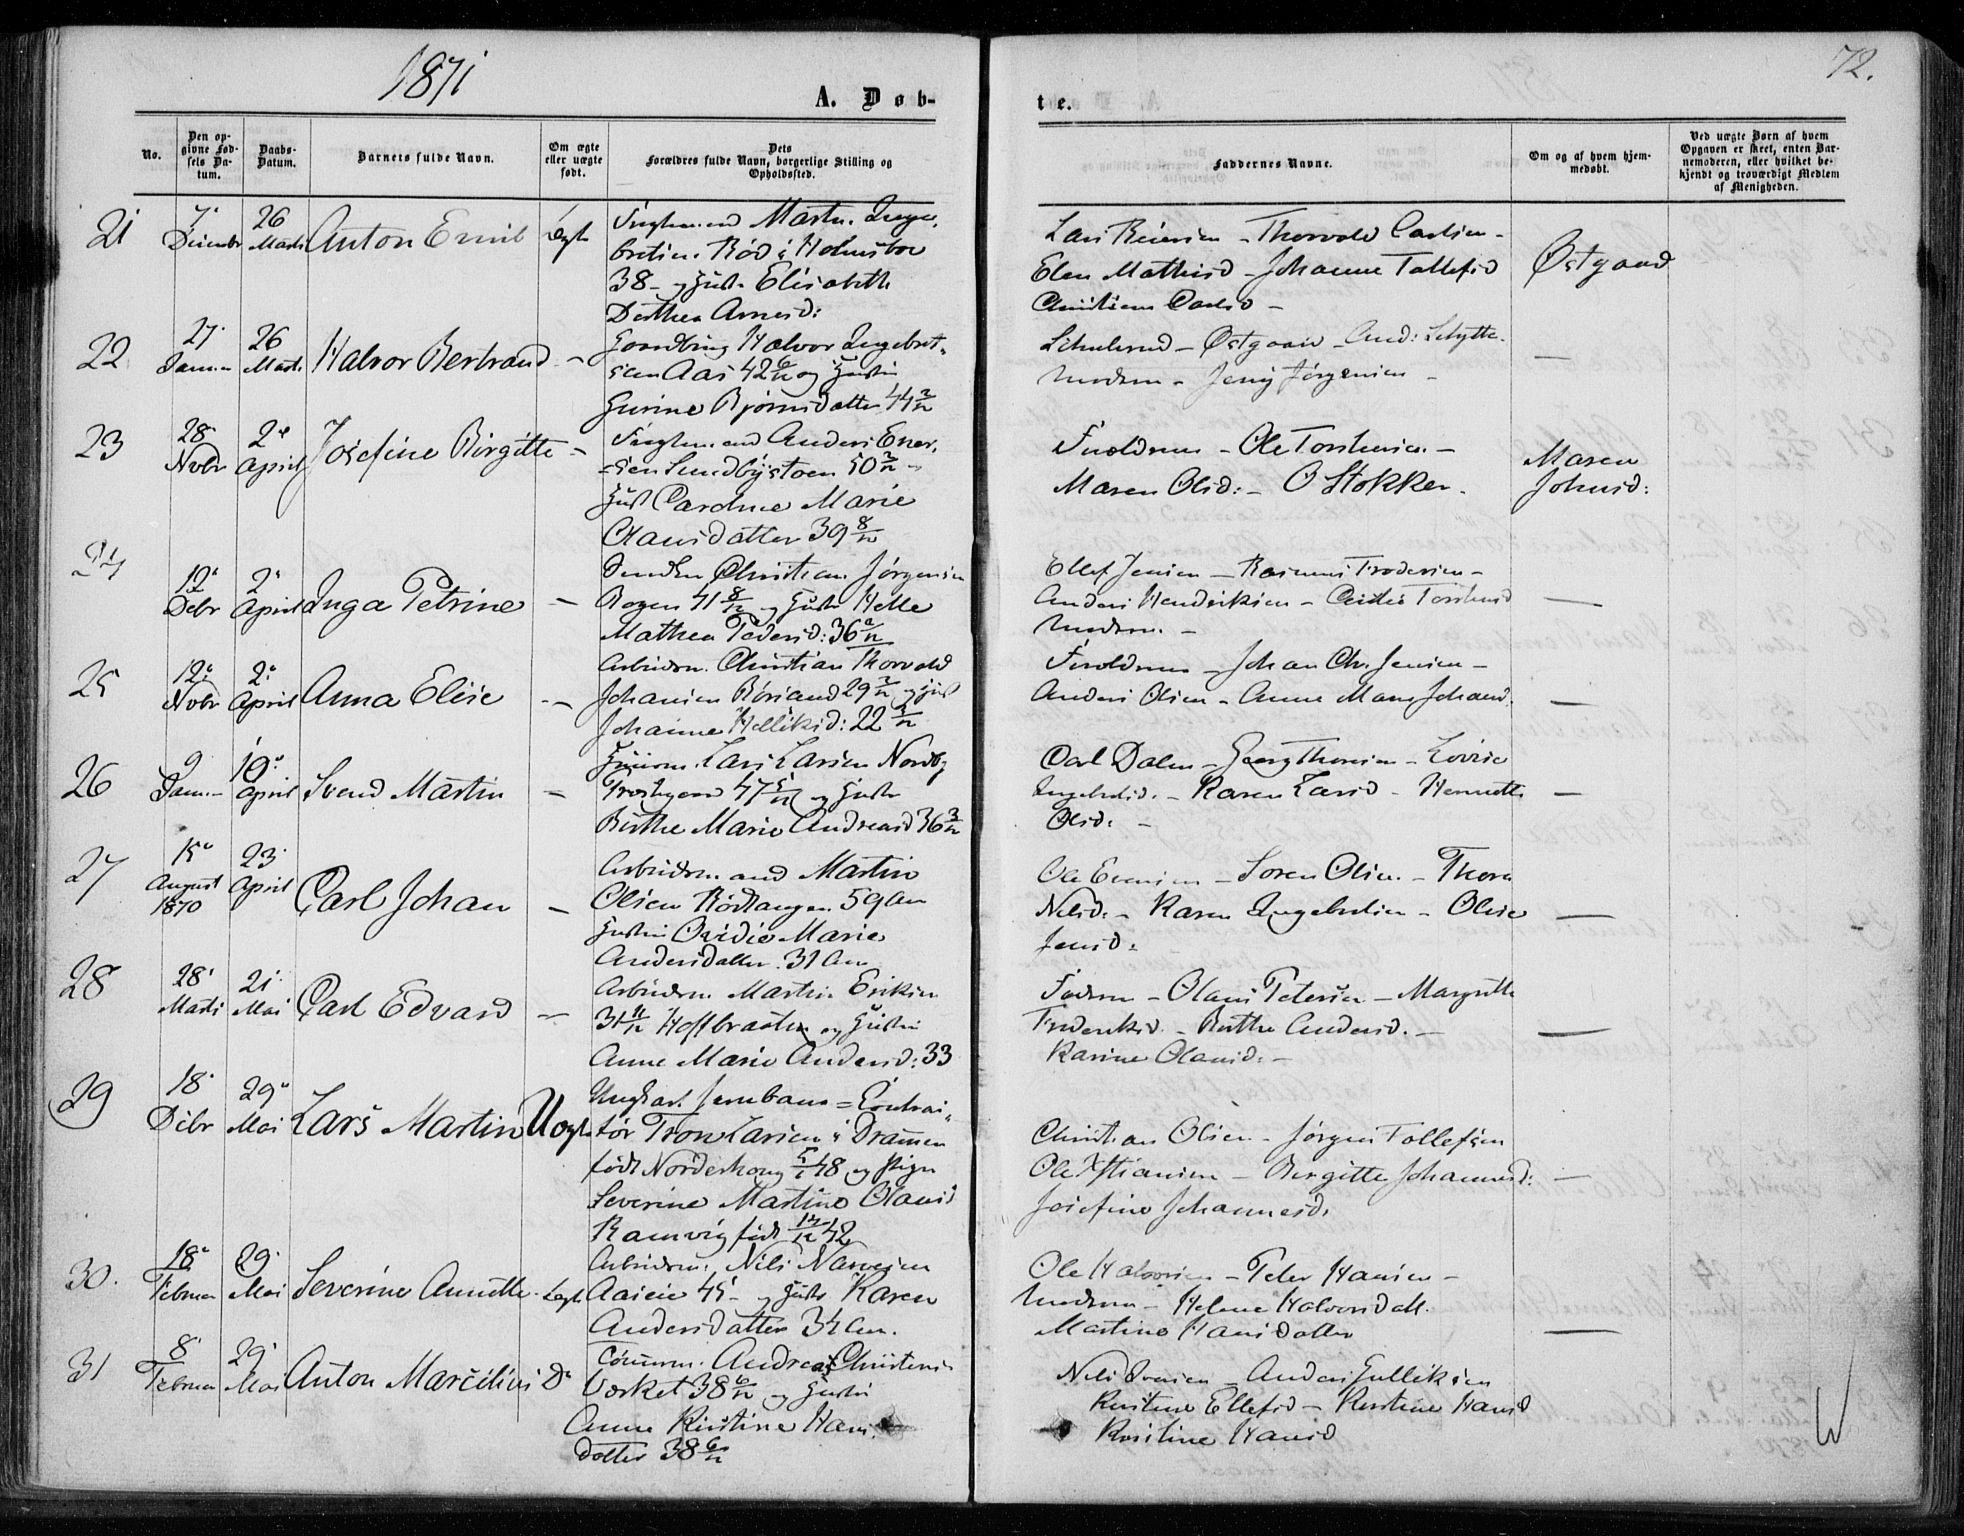 1871
72.
A. Døb-
te.
No.
Den op-
givne Fød-
sels Da-
tum.
Daabs-
Datum.
Barnets fulde Navn.
Om ægte
eller uægte
født.
Dets
Forældres fulde Navn, borgerlige Stilling og
Opholdssted.
Faddernes Navne.
Om og af hvem hjem-
medøbt.
Ved uægte Børn af hvem
Opgaven er skeet, enten Bar-
nemoderen, eller hvilket be-
kjendt og troværdigt Medlem
af Menigheden.
21
7
26
Marts
Anton Emil
Ægte
Martn. Inge-
bretsen. Rød i Holmsboe
38 - og Hust. Elisabeth
Dorthea Arnesd:
Lars Reiersen - Thorvald Carlsen -
Elen Mathisd - Johanne Tollefsd
Christiane Carlsd -
Østgaard
22
27
Janu.
26
Marts
Halvor Bertrand -
Gaardbrug Halvor Ingebret-
sen Aas 42 6/12 og Hustru
Gurine Bjørnsdatter 44 2/12
Schulerud - Østgaard - And: Schytte.
Modren - Jenny Jørgensen -
-
23
28
Novbr
2
April
Josefine Birgitte -
Anders Ener-
sen Sundbystøen 50 2/12
Hust Caroline Marie
Clausdatter 39 8/12
Forældrene - Ole Torstensen. -
Maren Olsd: - O Stokker.
Maren
Johnsd:
24
12
Debr
2
April
Inga Petrine -
Christian Jørgensen
Bogen 41 8/12 og Hustr Helle
Mathea Pedersd: 36 9/12
Ellef Jensen - Rasmus Frodesen -
Anders Hendriksen - Torstensd
Modren. -
-
25
12
Novbr
2
April
Anna Elise -
Arbeidsm. Christian Thorvald
Johansen Rørsand 29 2/12 og Hust
Johanne Helliksd: 22
Forældrene - Johan Chr. Jensen -
Anders Olsen - Anne Marie Johansd.
-
26
9
Janu.
10
April
Svend Martin -
Lars Larsen Nordby
47 5/12 og Hustr
Birthe Marie Andreasd 36 3/12
Carl Dalen - Georg Thoresen - Lovise
Ingebretsd. - Karen Larsd - Hennette
Olsd. -
-
27
15
August
1870
23
April
Carl Johan -
Arbeidsm. and Martin
Olsen Rødtangen 59 Aar
Hustru Ovidie Marie
Andersdatter. 31 Aar
Ole Evensen - Soren Olsen. - Thora
Nilsd. - Karen Ingebretsen - Olise
Jensd.
-
28
28
Marts
21
Mai
Carl Edvard -
Arbeidsm. Martin Eriksen
31 11/12 Hoffbraaten og Hustru
Anne Marie Andersd: 33
Fadren - Olaus Petersen - Margrethe
Frederiksd. - Birthe Andersd. -
Karine Olausd. -
-
29
18
Debr
29
Mai
Lars Martin
Uægte
Ungkarl Jernbane = Contrac-
tør Tron Larsen i Drammen
født Norderhoug 5/1 48 og Pige
Severine Martine Olausd
Ramvig født 12/12 42
Christian Olsen - Jørgen Tollefsen
Ole Xstiansen - Birgitte Johannesd:
Josefine Johannesd.
-
30.
18
Februar
29
Mai
Severine Annette
Ægte
Arbeidsm. Nils Narvesen
Aaseie 45 - og Hustr Karen
Andersdatter 34 Aar.
Ole Halvorsen - Peter Hansen -
Modren - Helene Halvorsdatt.
Martine Hansdatter
-
31
8
Februar
29
Mai
Anton Marcilius
Do
Tømmerm. Andreas Christens.
Værket 38 6/12 og Hustru
Anne Kirstine Hans
datter 38 6/12
Nils Iversen - Anders Gulliksen
Kirstine Ellefsd - Kirstine Hansd
Kirstine Hansd